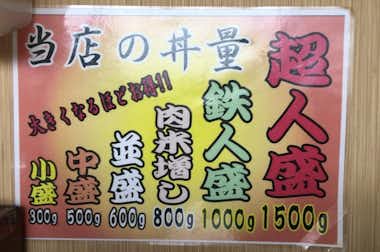 当店の丼量
大きくなるほどお得!!
小盛
300g
中盛
500g
並盛
600g
肉米増し
800g
鉄人盛
1000g
超人盛
1500g